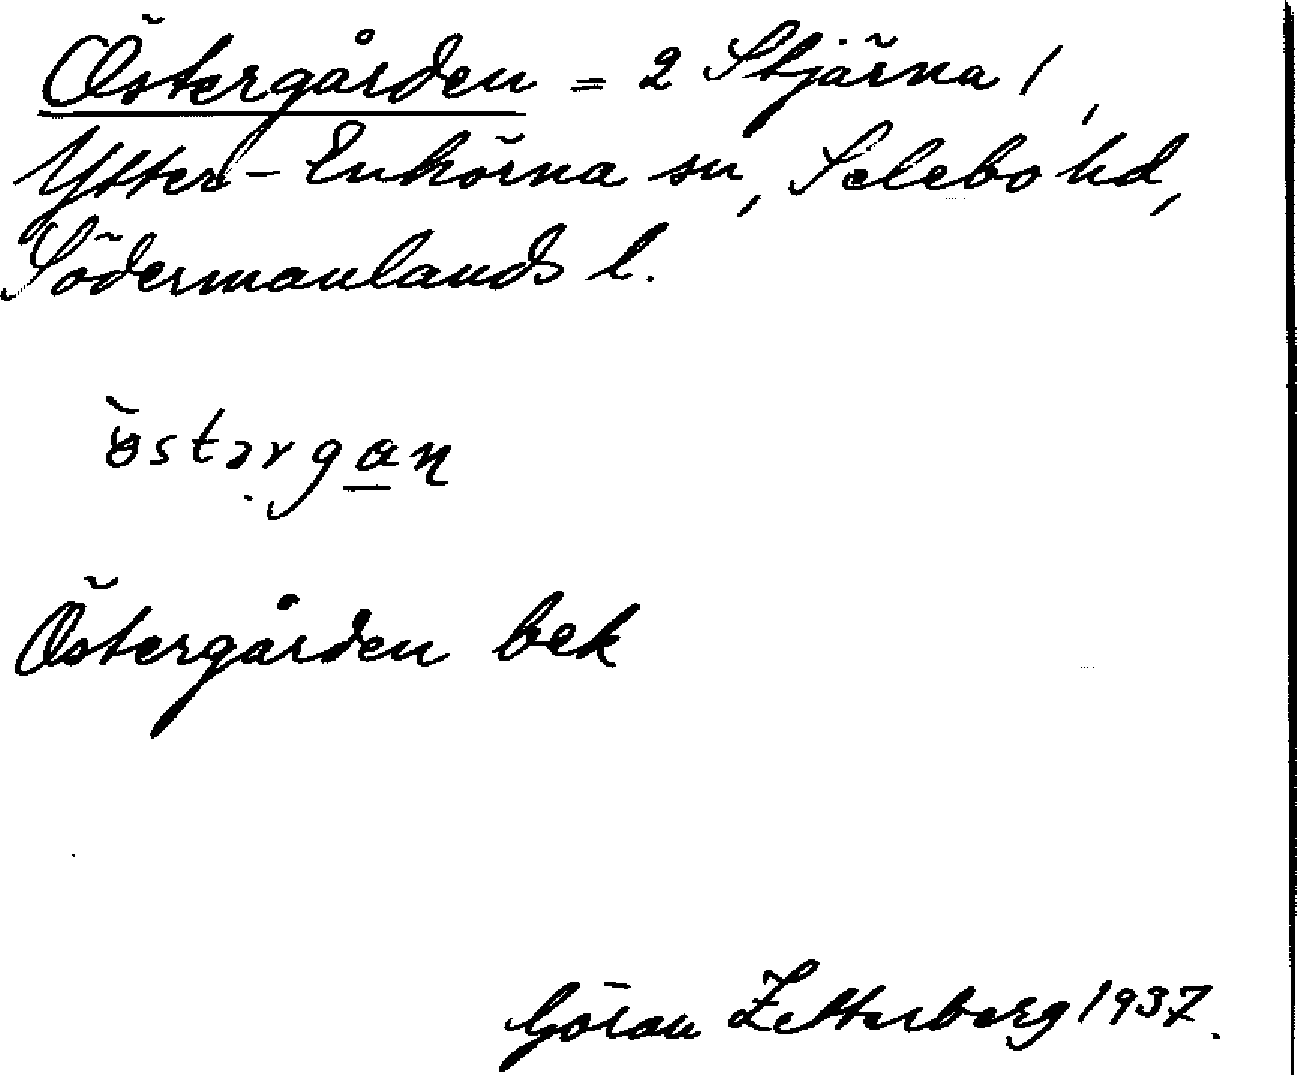 Östergården = 2 Stjärna 1,
Ytter-Enhörna sn, Selebo hd,
Södermanlands l.
östərgan
Östergården bek
Göran Zetterberg 1937.